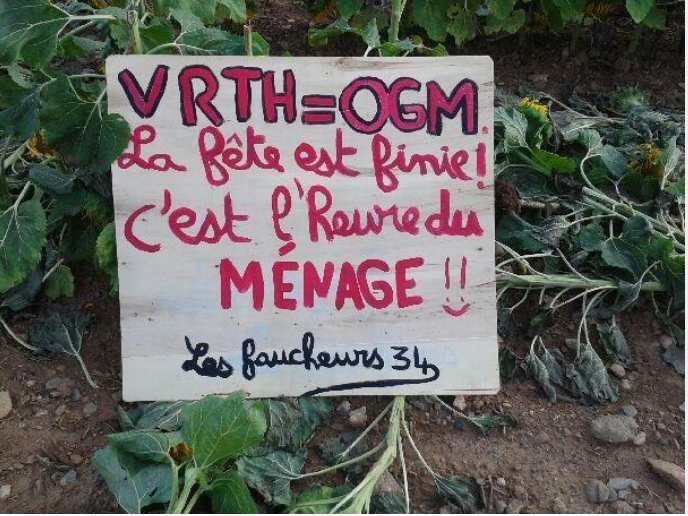 VRTH=OGM
La fête est finie!
c'est l'Heure du
MÉNAGE !!
Les faucheurs 34